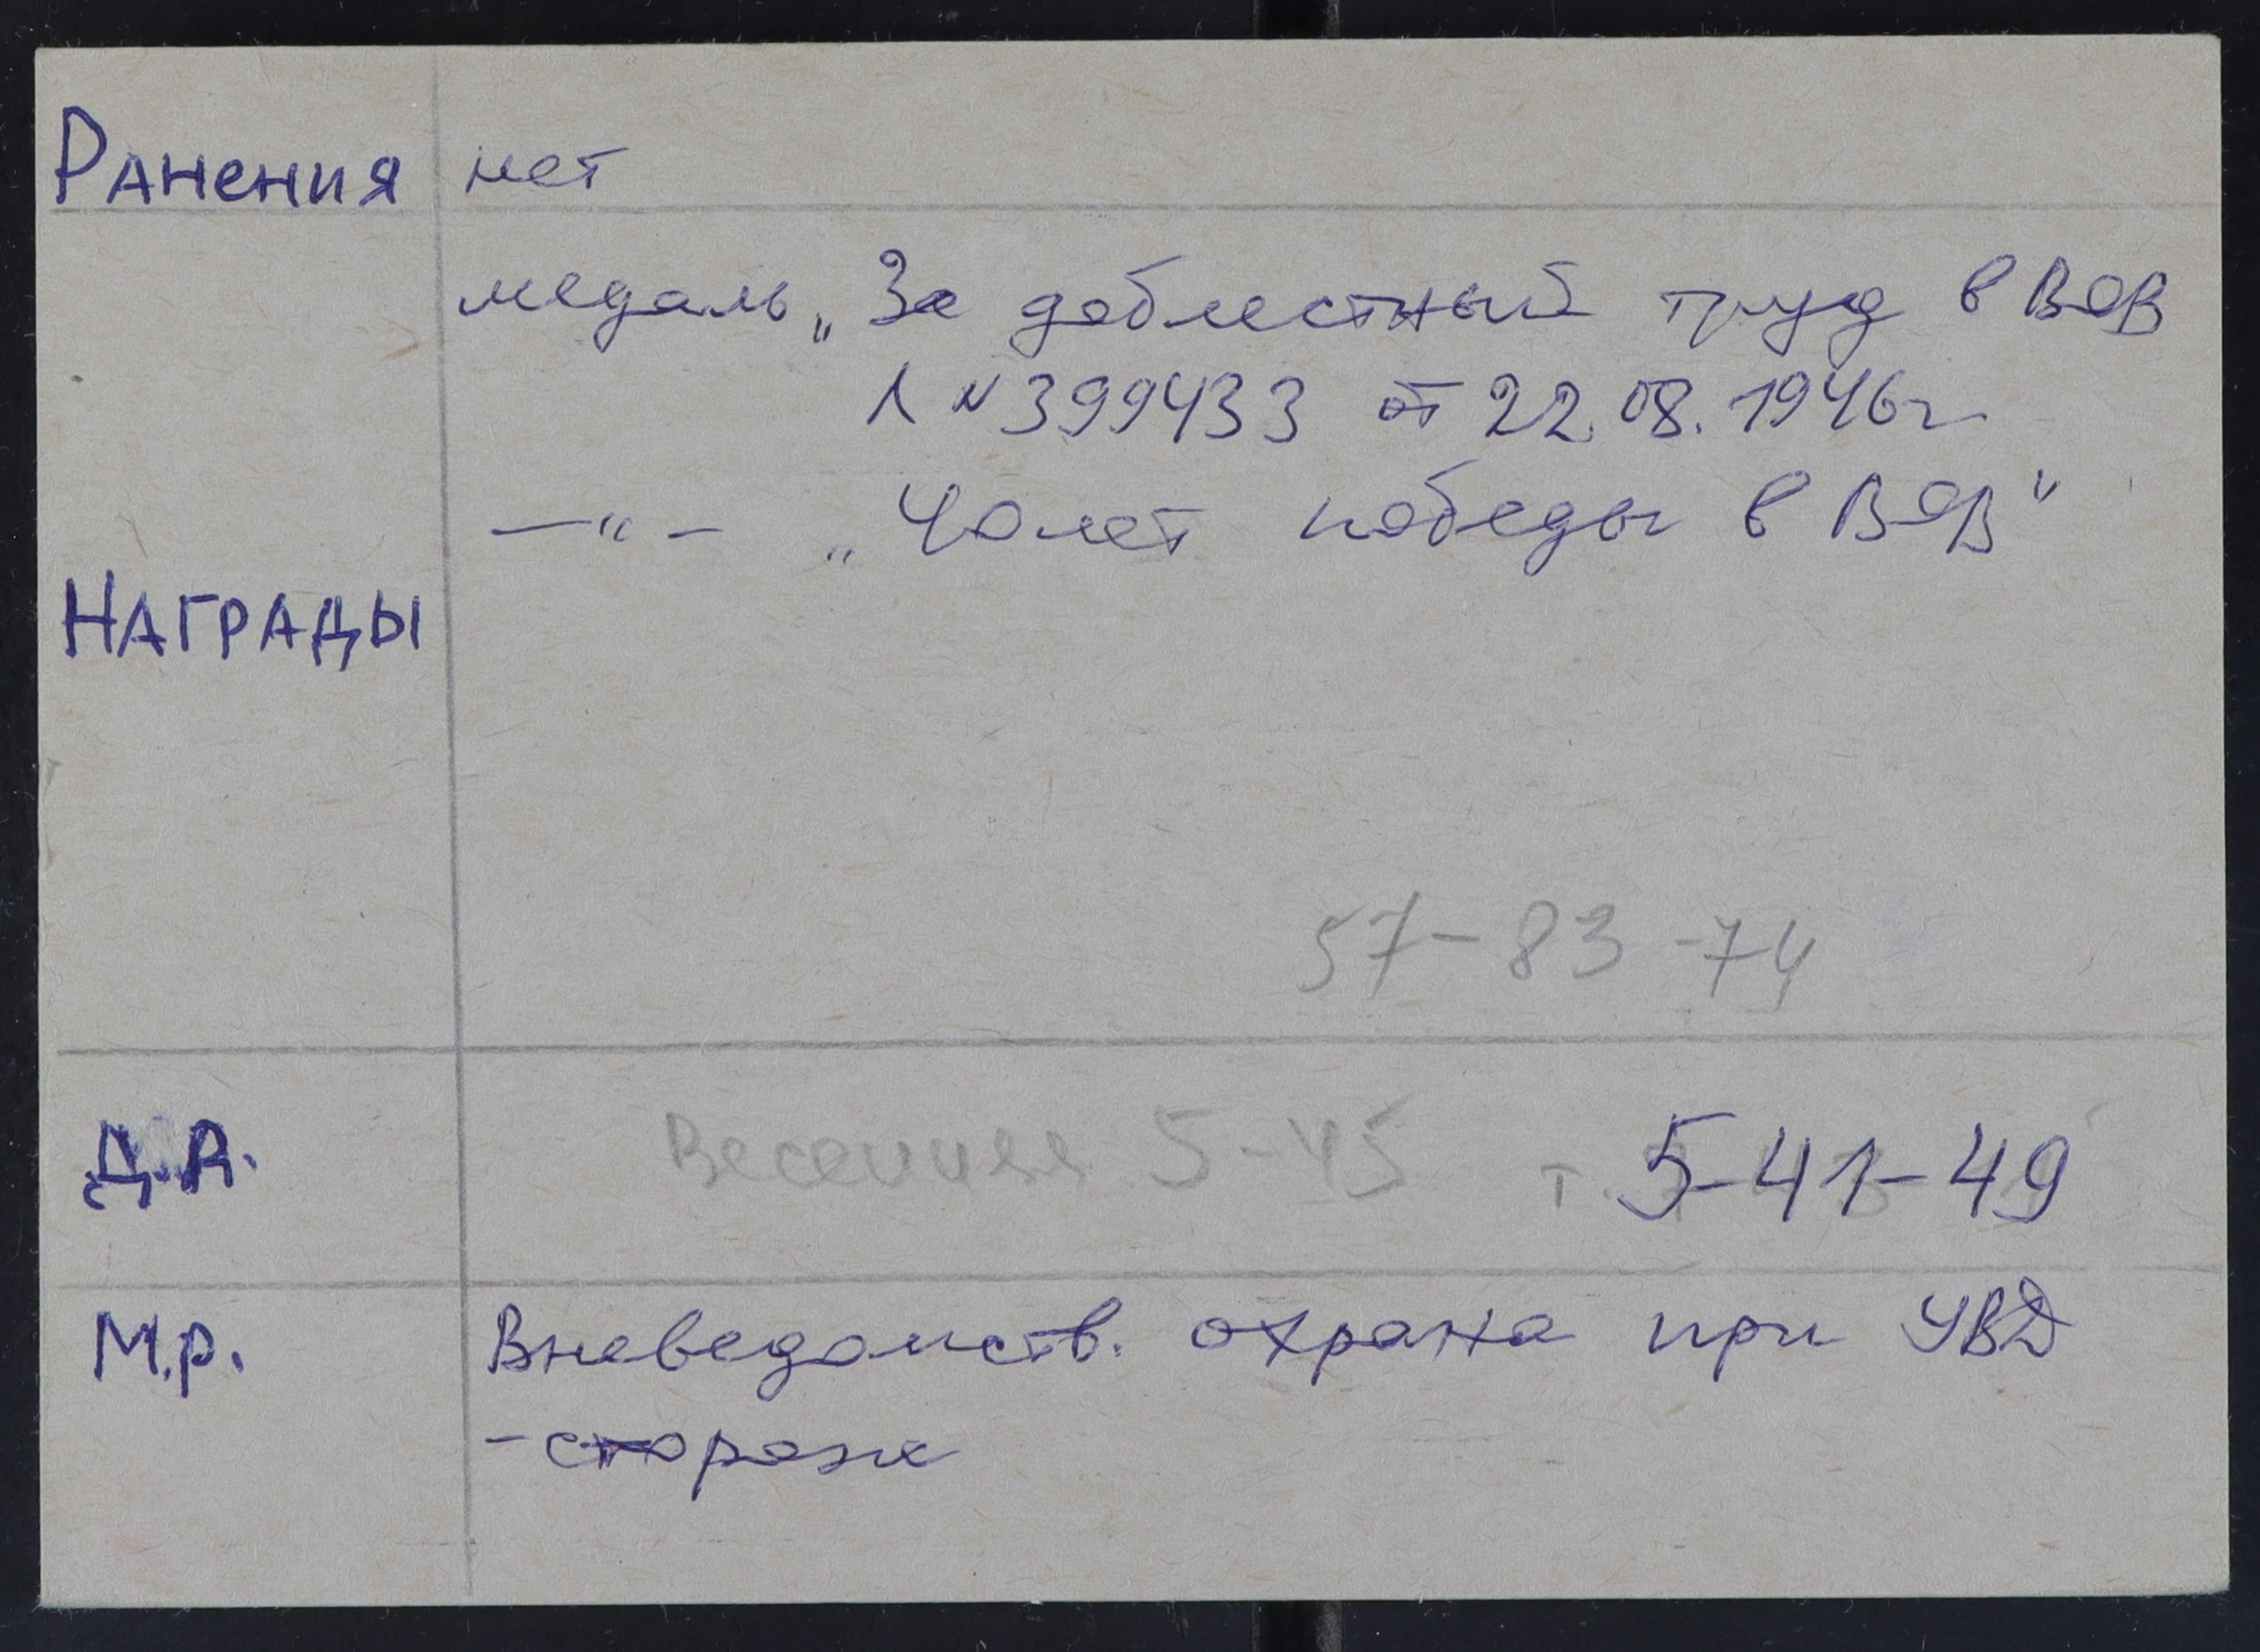 Ранения нет
медаль „За доблестный труд в ВОВ
Л N 399433 от 22.08.1946г
—"— „40 лет победы в ВОВ"
Награды
57-83-74
Д.А. Весенняя 5-45 т. 5-41-49
М.р. Вневедомств. охрана при УВД
-сторож